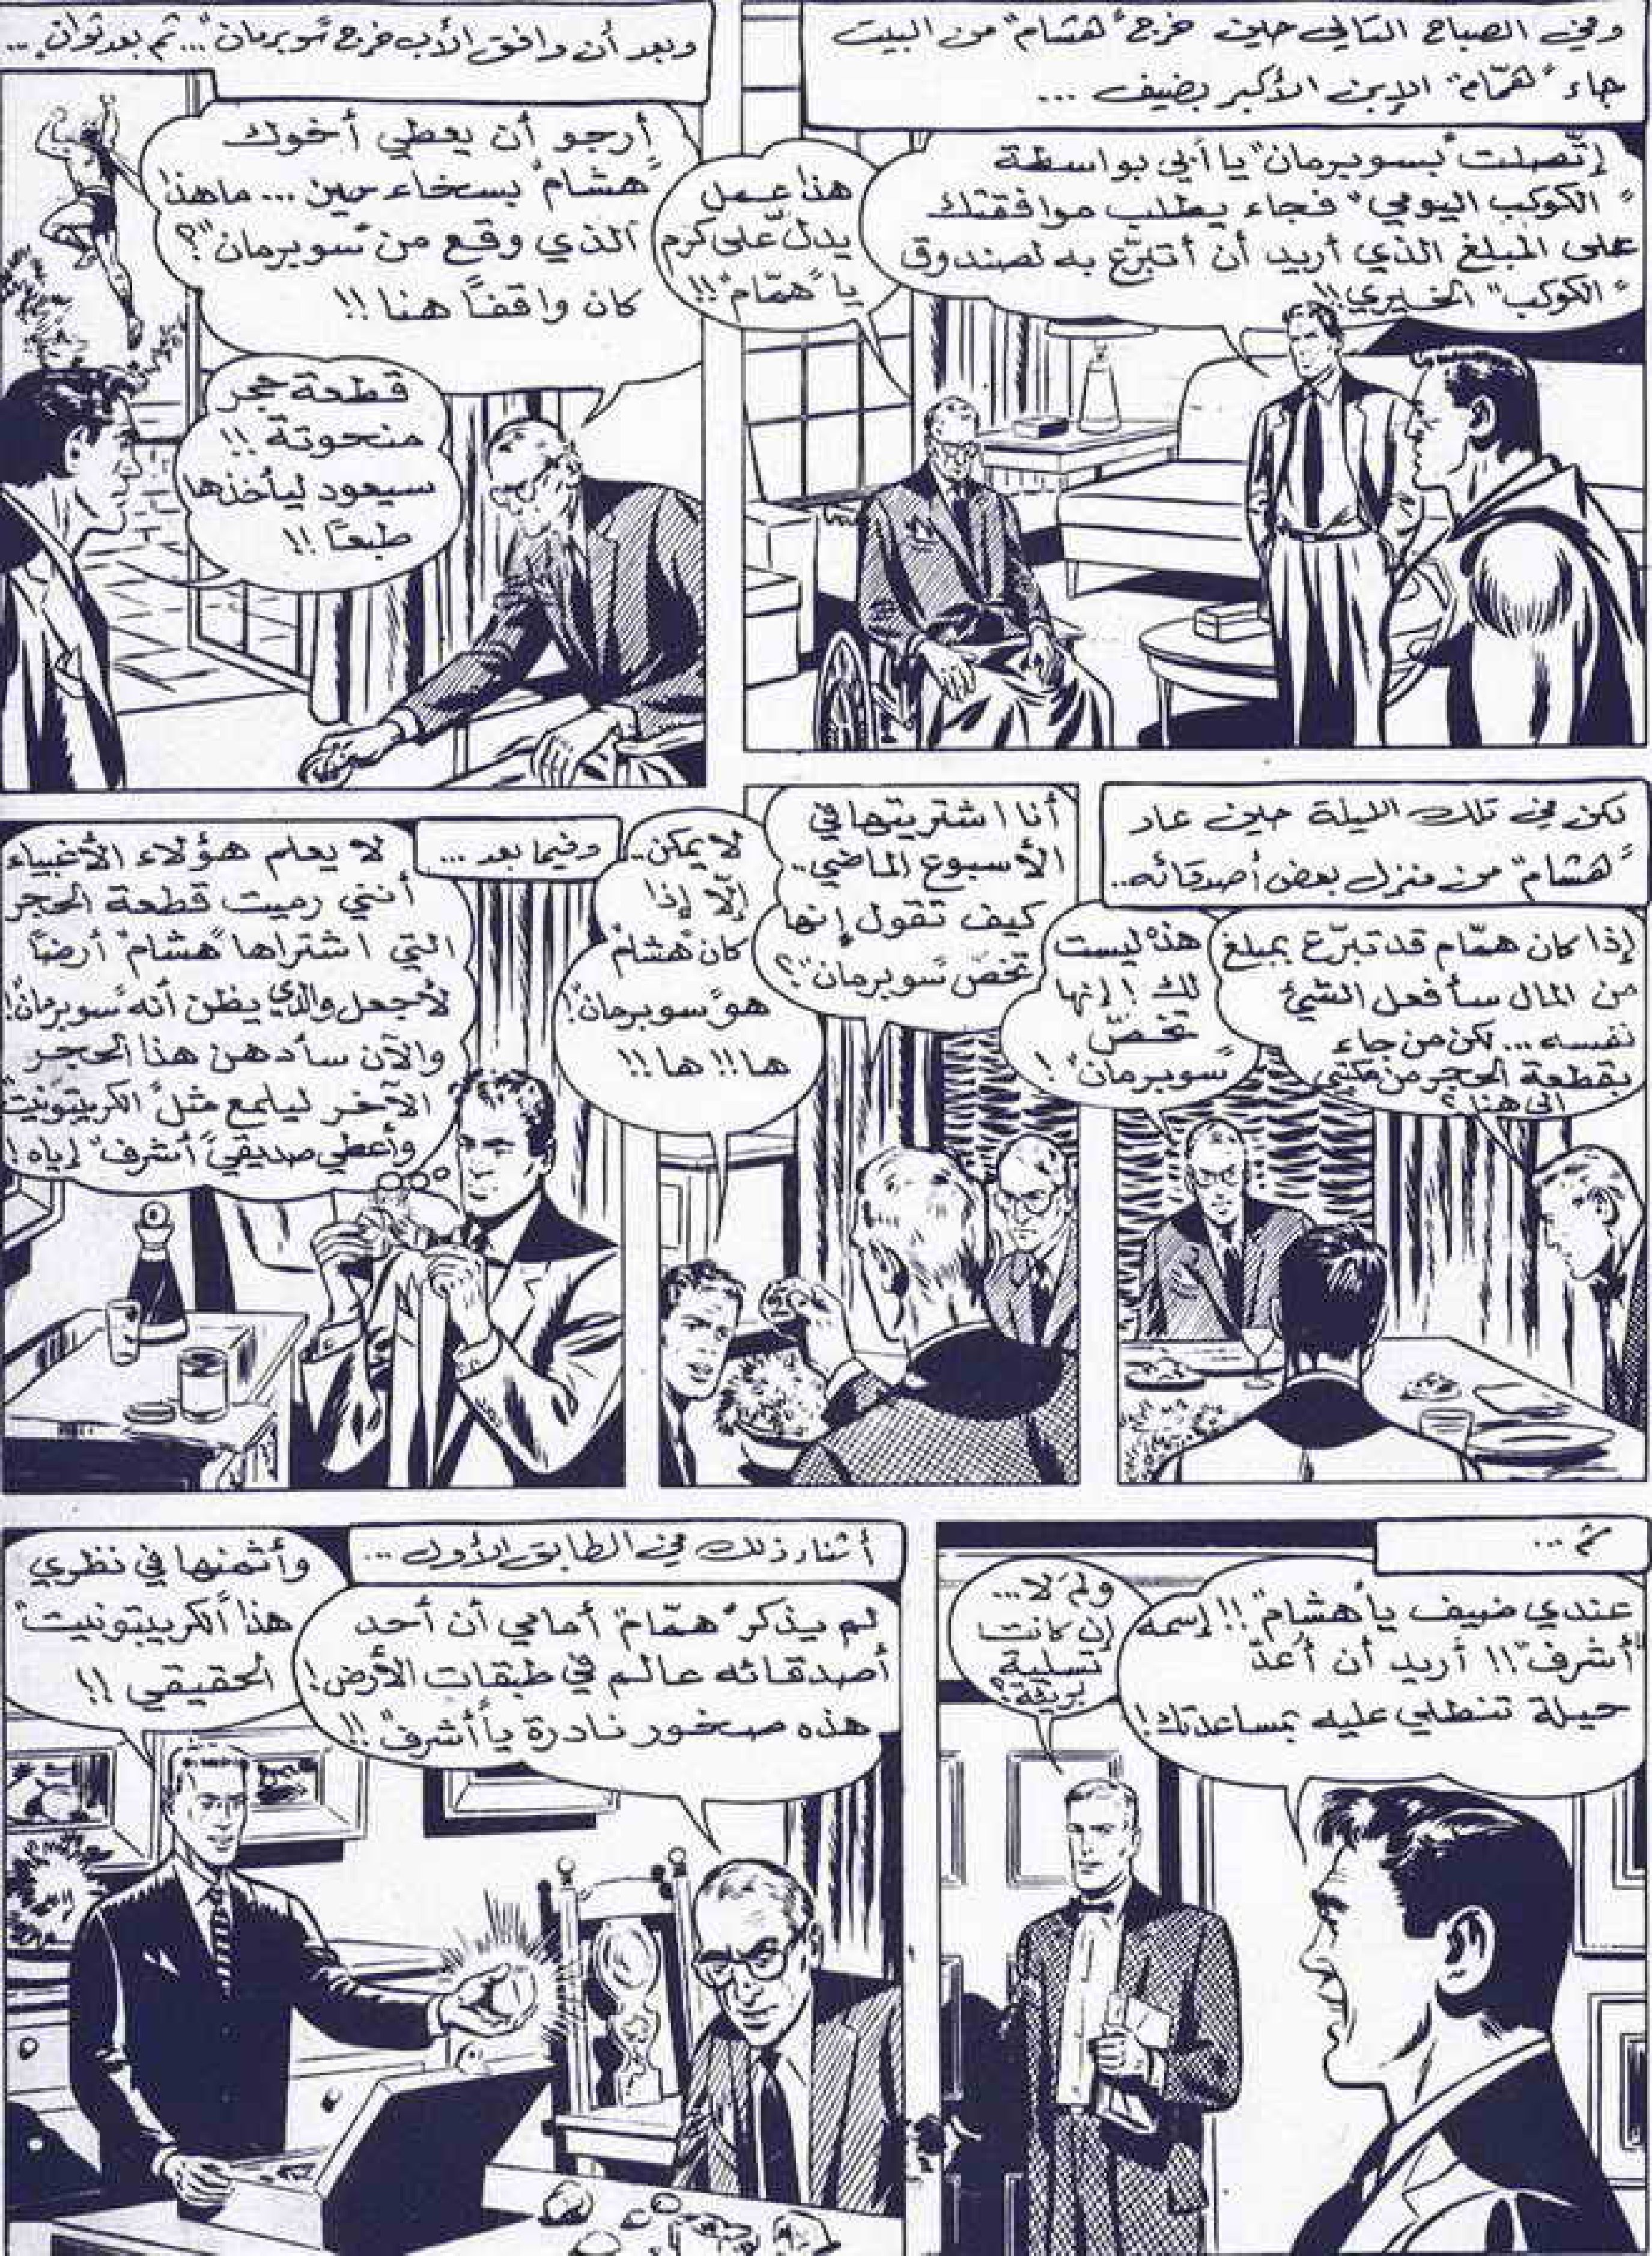 وفي الصباح التالي حين خرج "هشام" من البيت
جاء "همّام" الابن الأكبر بضيف ...
إتّصلت "بسوبرمان" يا أبي بواسطة
"الكوكب اليومي" فجاء يطلب موافقتك
على المبلغ الذي أريد أن أتبرّع به لصندوق
"الكوكب" الخيري!!
هذا عمل
يدلّ على كرم
يا "همّام"!!
وبعد أن وافق الأب خرج "سوبرمان" ... ثم بعد ثوان ...
أرجو أن يعطي أخوك
"هشام" بسخاء حين ... ما هذا
الذي وقع من "سوبرمان"؟
كان واقفاً هنا!!
قطعة حجر
منحوتة!!
سيعود ليأخذها
طبعًا!!
لكن في تلك الليلة حين عاد
"هشام" من منزل بعض أصدقائه..
إذا كان همّام قد تبرّع بمبلغ
من المال سأفعل الشيئ
نفسه ... لكن من جاء
بقطعة الحجر من مكتبي
الى هنا؟
هذه ليست
لك! إنها
تخصّ
"سوبرمان"!
أنا اشتريتها في
الأسبوع الماضي..
كيف تقول إنها
تخصّ "سوبرمان"؟
لا يمكن..
إلّا إذا
كان "هشام"
هو "سوبرمان"!
ها!! ها!!
وفيما بعد ...
لا يعلم هؤلاء الأغبياء
أنني رميت قطعة الحجر
التي اشتراها "هشام" أرضاً
لأجعل والدي يظن أنه "سوبرمان"!
والآن سأدهن هذا الحجر
الآخر ليلمع مثل "الكريبتونيت"
وأعطي صديقي "أشرف" إياه!
ثم ...
عندي ضيف يا "هشام"!! إسمه
"أشرف"!! أريد أن أعدّ
حيلة تنطلي عليه بمساعدتك!
ولم لا ...
إن كانت
تسلية
بريئة؟
أثناء ذلك في الطابق الأول ...
لم يذكر "همّام" أمامي أن أحد
أصدقائه عالم في طبقات الأرض!
هذه صخور نادرة يا "أشرف"!!
وأثمنها في نظري
هذا "الكريبتونيت"
الحقيقي!!